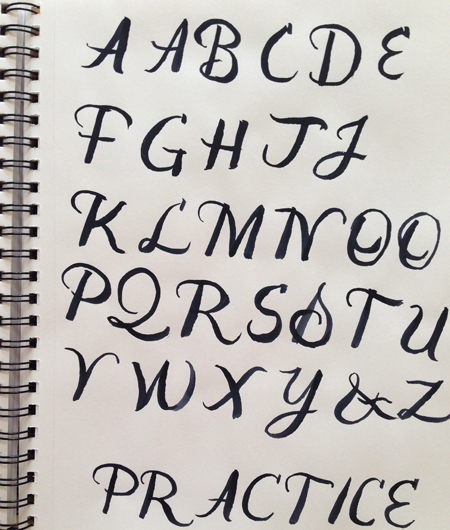 A A B C D E
F G H I J
K L M N O O
P Q R S S T U
V W X Y & Z
PRACTICE